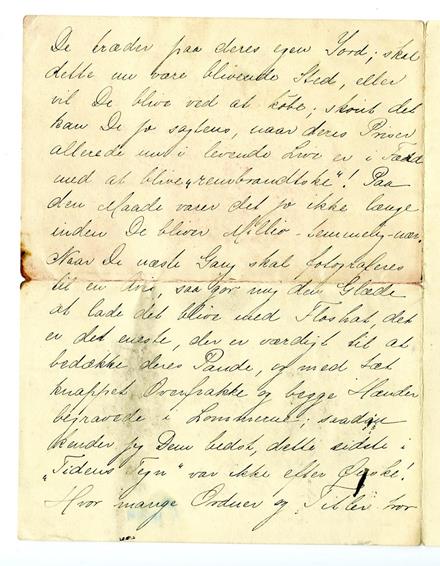 De træder paa deres egen Jord; skal
dette nu være blivende Sted, eller
vil De blive ved at købe; skönt det
kan De jo sagtens, naar deres Priser
allerede nu i levende Live er i Færd
med at blive „rembrandtske"! Paa
den Maade varer det jo ikke længe
inden De bliver Millio-
Naar De næste Gang skal fotograferes
til en Avis, saa gør mig den Glæde
at lade det blive med Floshat, det
er det eneste, der er værdigt til at
bedække deres Pande, og med tæt
knappet Overfrakke og begge Hænder
begravede i Lommerne; saadan
kender jeg Dem bedst, dette sidste i
„Tidens Tegn" var ikke efter Ønske!
Hvor mange Ordner og Titler har